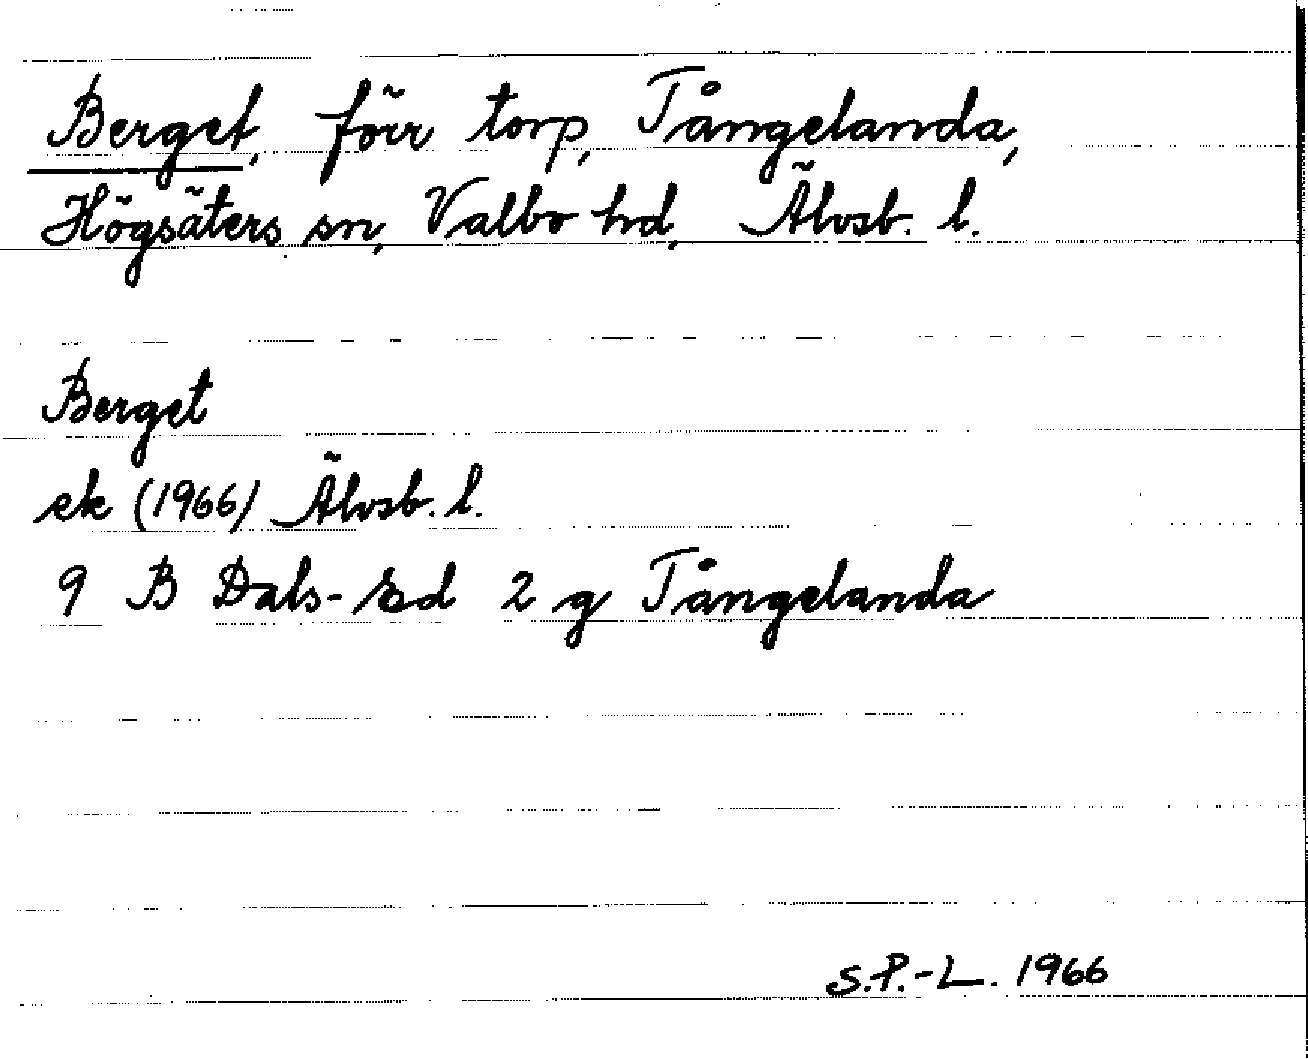 Berget, förr torp, Tångelanda,
Högsäters sn, Valbo hd, Älvsb. l.
Berget
ek (1966) Älvsb. l.
9 B Dals-Ed 2 g Tångelanda
S.P.-L. 1966